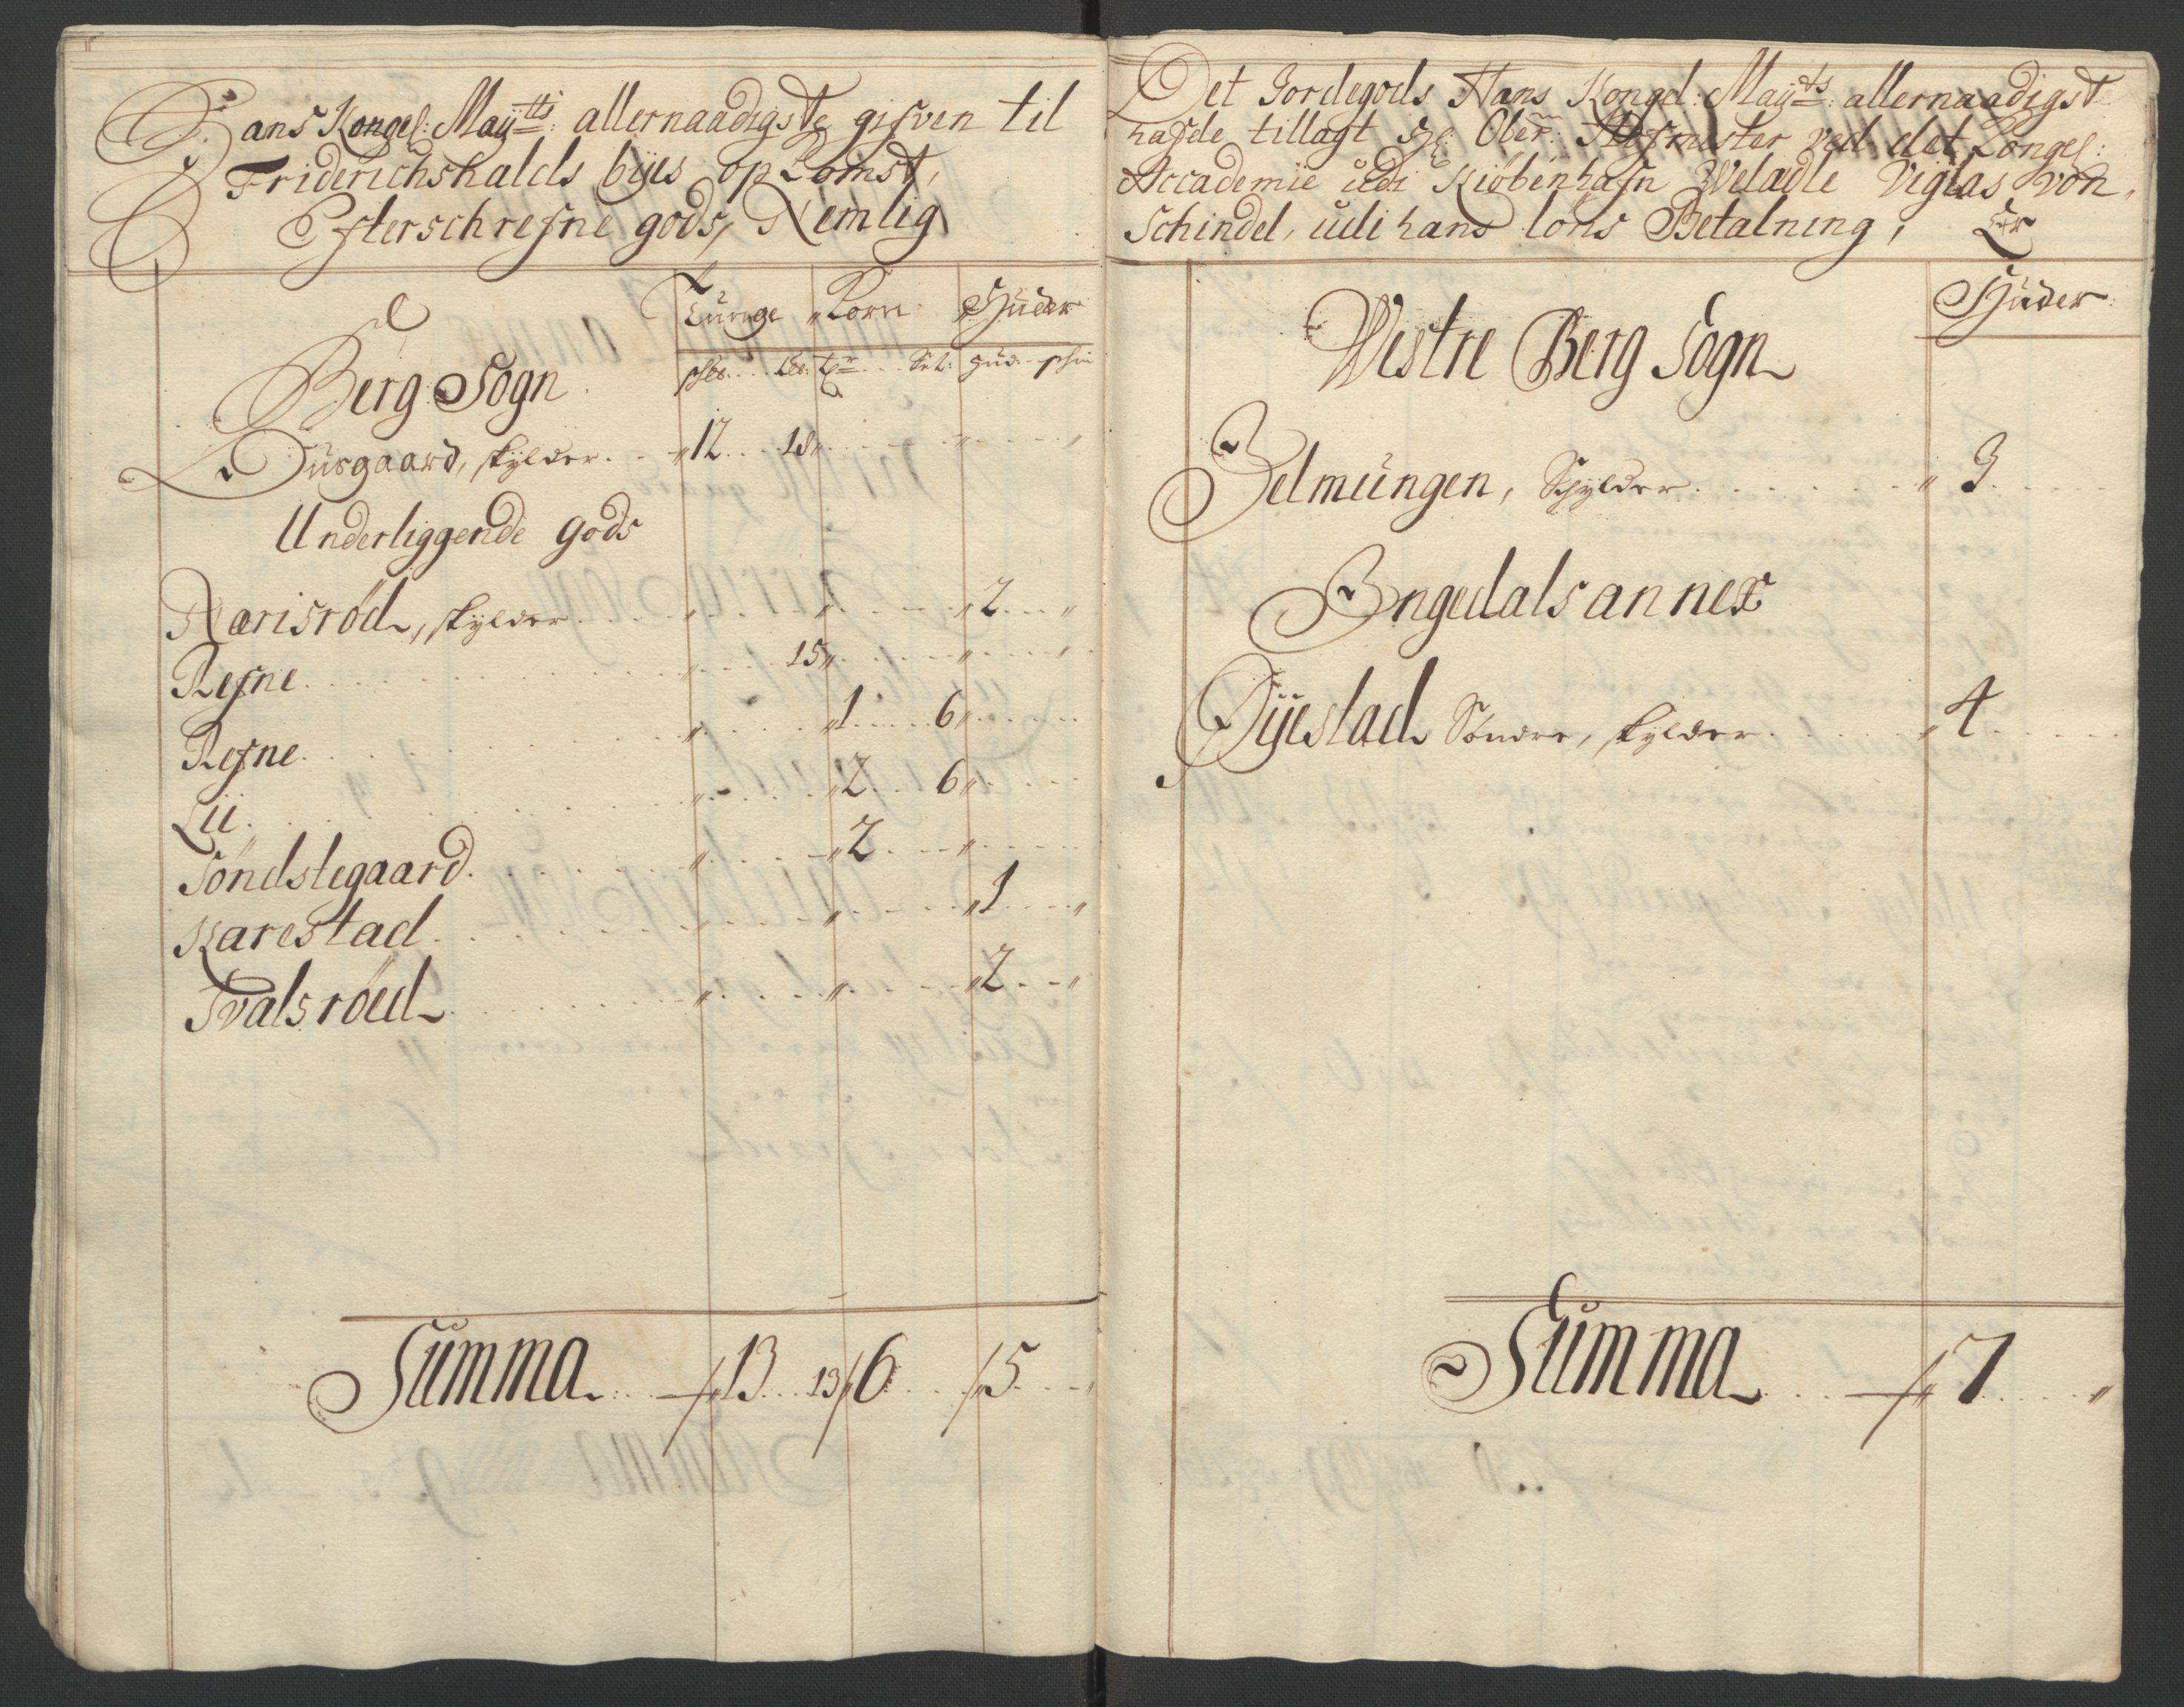 Hans Kongel: Maÿtts: allernaadigste gifven til
Friderichshalds bÿes opkomst,
Efterschrefne gods, Nemlig
Tunge Korn Huder
Berg Sogn
pd. td. Set. Hud. skin
Busgaard, skÿlder 12 18
Underliggende gods
Rarisröd, skÿlder 2
Refne 15
Refne 1 6
Lii 2 6
Söndstegaard 2
Karestad 1
Svalsröed 2
Summa 13 13 6 5
Det Jordegods Hans Kongel: Maÿds: allernaadigst
hafde tillagt Ober Hofmester ved det Kongel:
Accademie udi Kiöbenhafn Weladle Viglas von
Schindel, udi hans löns Betalning, Er
Huder
Westre Berg Sogn
Belmungen, Schÿlder 3
Engedals annex
Öÿestad Söndre, skÿlder 4
Summa 7